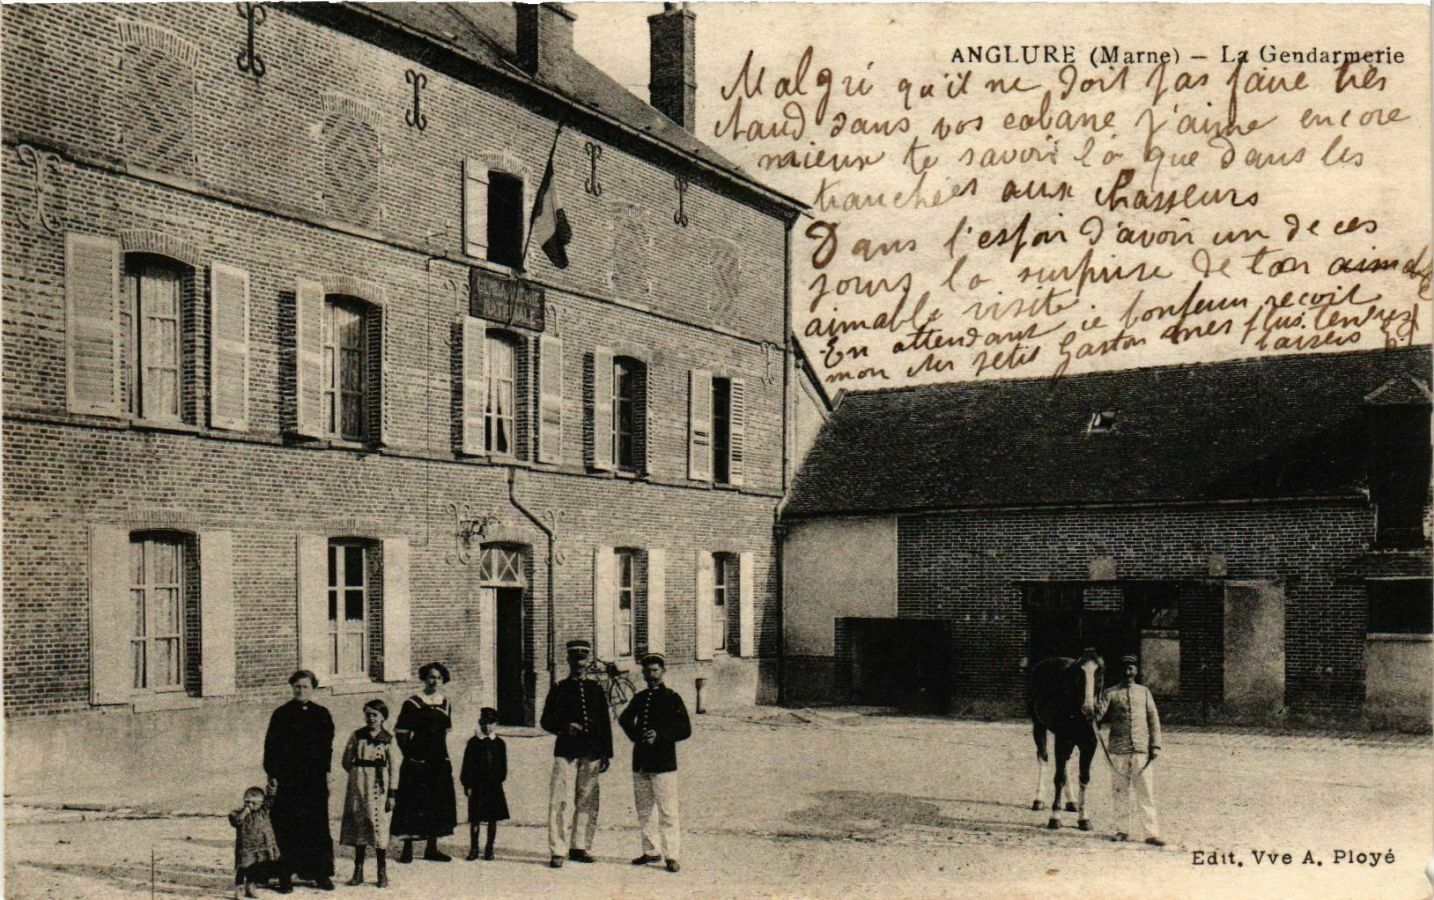 ANGLURE (Marne) — La Gendarmerie
Malgré qu'il ne doit pas faire très
chaud dans vos cabane j'aime encore
mieux te savoir là que dans les
tranchées aux chasseurs
Dans l'espoir d'avoir un de ces
jours la surprise de ton
aimable visite
En attendant je reçoit
mon petit Gaston mes plus tendres
baisers
Edit. Vve A. Ployé